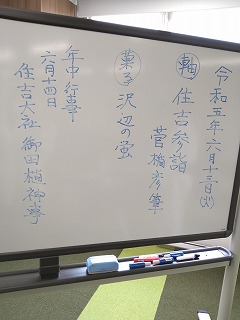 令和五年六月十三日(火)
軸 住吉参詣
菅楯彦筆
菓子 沢辺の蛍
年中行事
六月十四日
住吉大社 御田植神事